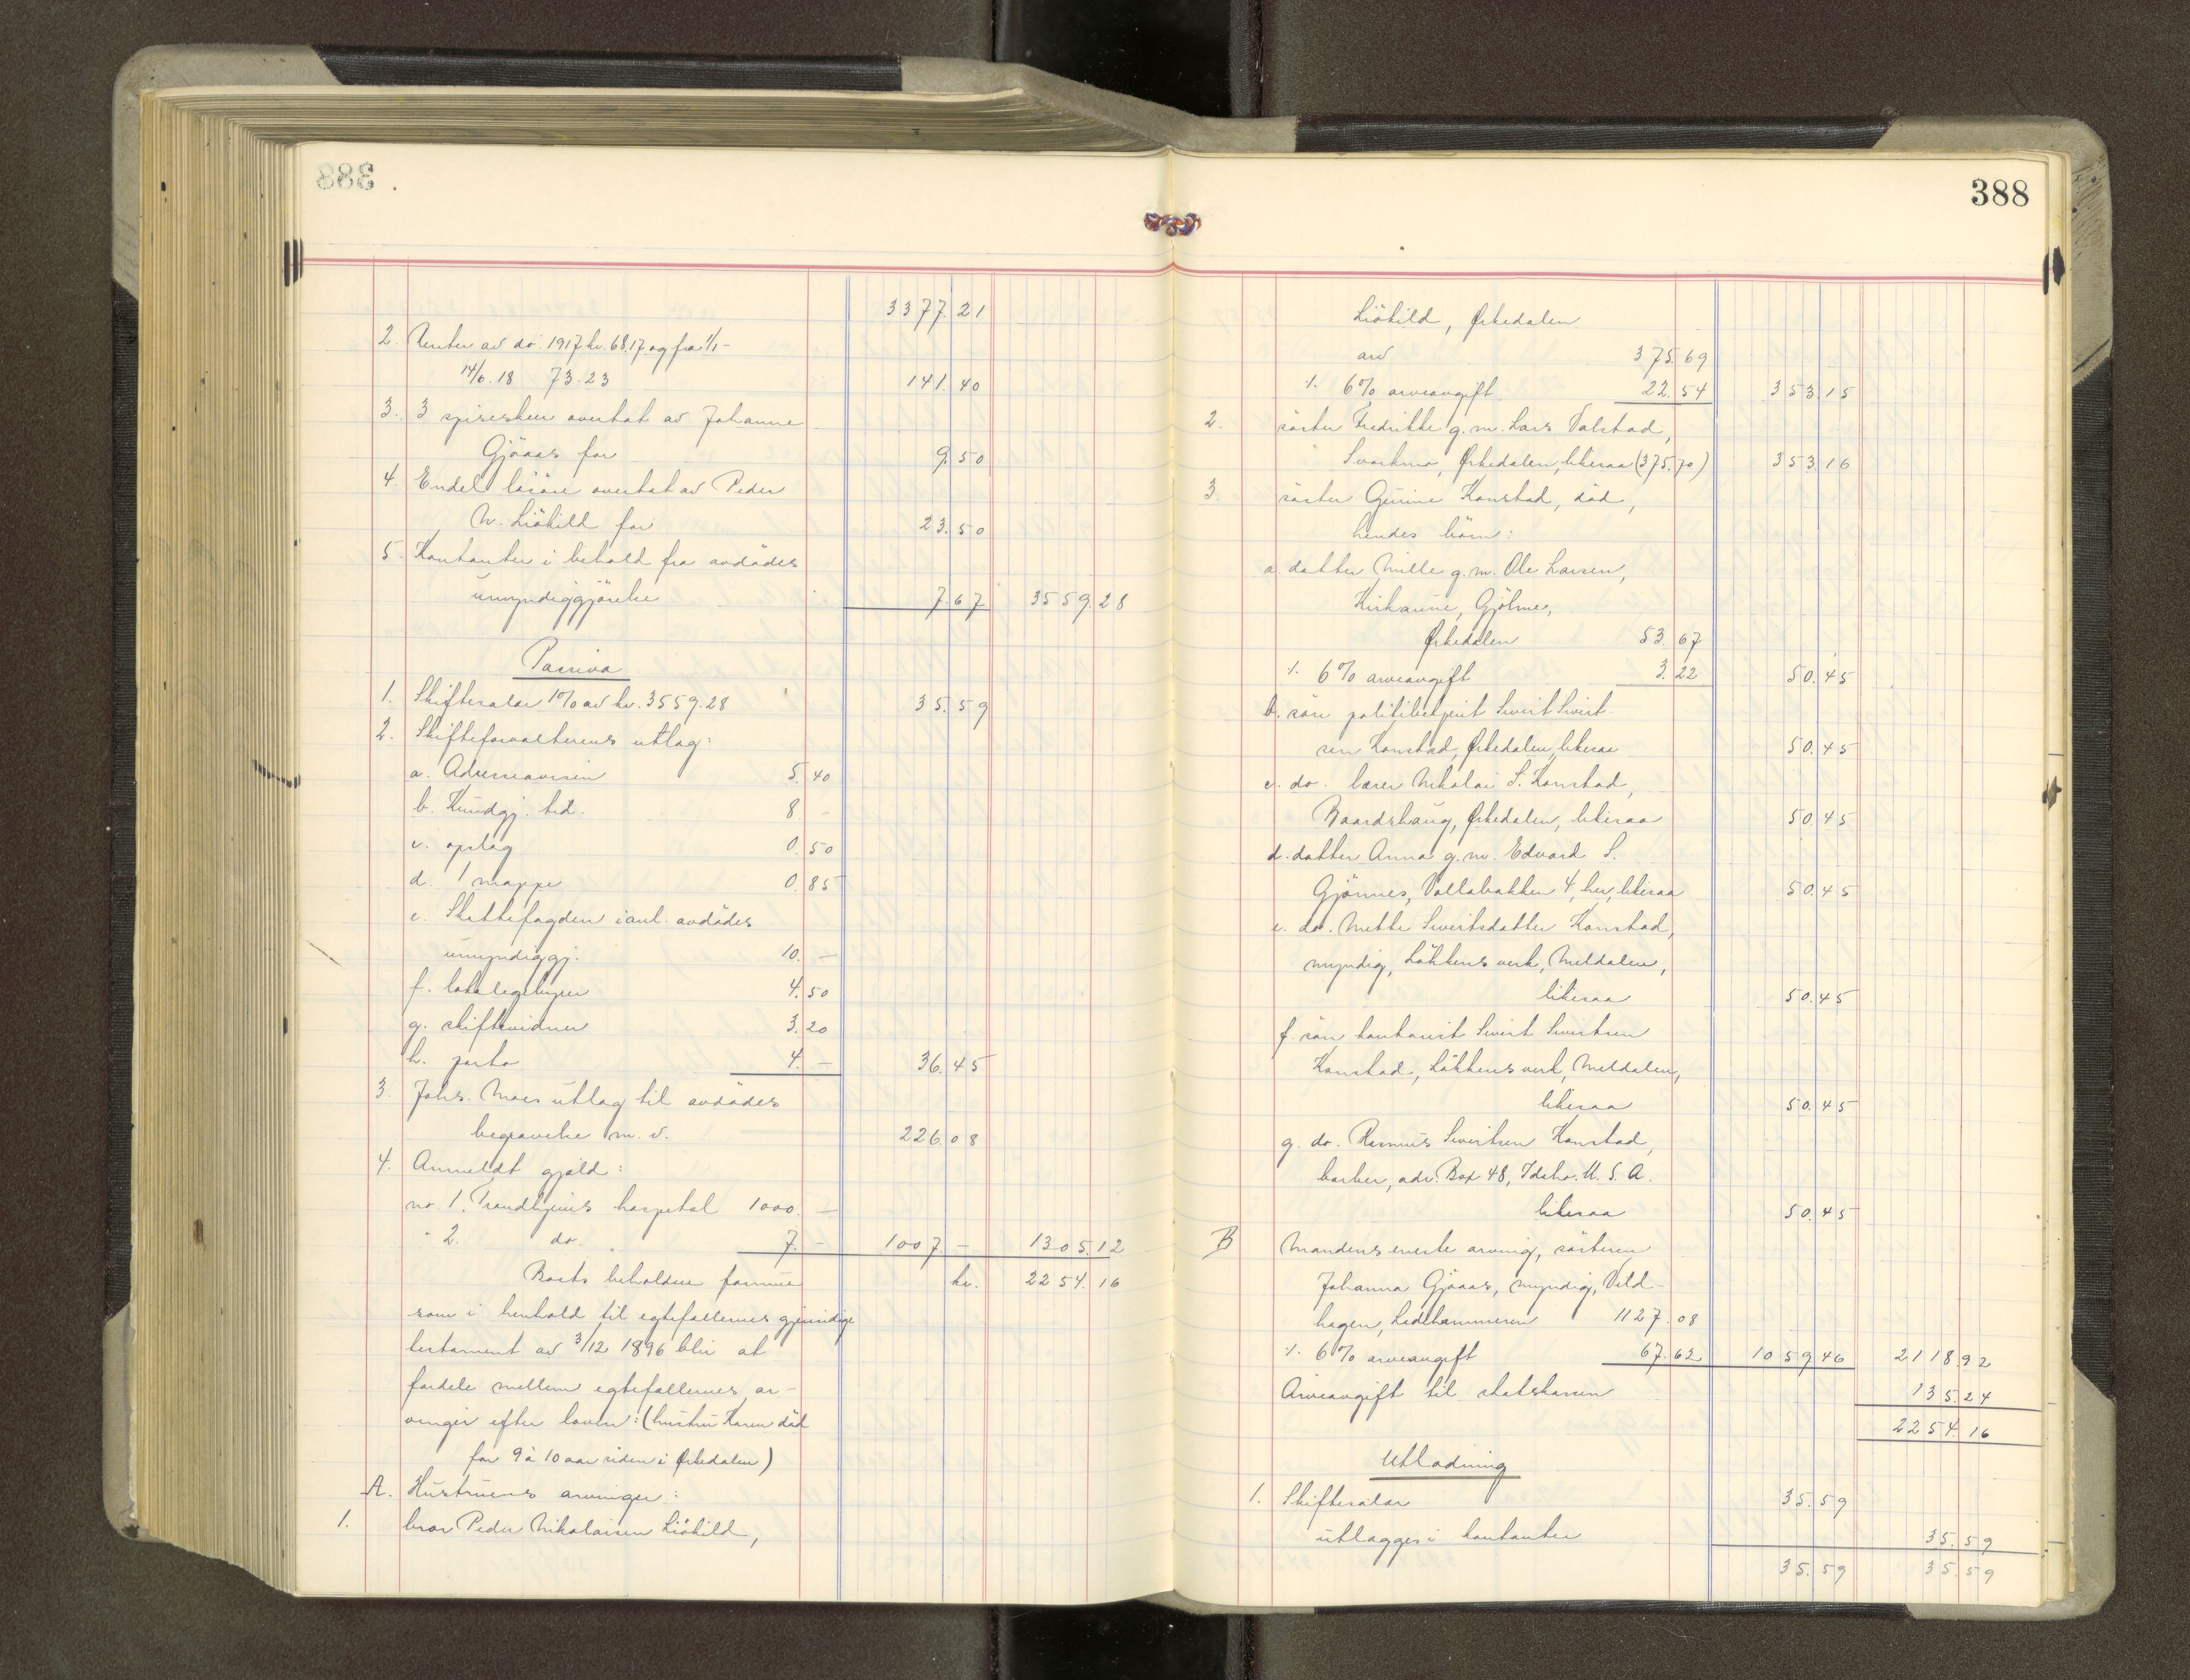 383
3377.21
2. Renter av do. 1917 kr. 68.17 og fra 1/1 -
14/6.18 73.23 141.40
3. 3 spiseskeer overtat av Johanne
Gjöaas for 9.50
4. Endel lösöre overtat av Peder
N. Liökild for 23.50
5. Kontanter i behold fra avdödes
umyndiggjörelse 7.67 3559.28
Passiva
1. Skiftesalær 1% av kr. 3559.28 35.59
2. Skifteforvalterens utlag:
a. Adresseavisen 5.40
b. Kundgj. tid. 8. -
c. opslag 0.50
d. 1 mappe 0.85
e. Skattefogden i anl. avdödes
umyndiggj. 10. -
f. lokalegebyrer 4.50
g. skiftevidner 3.20
h. porto 4. - 36.45
3. Johs. Moes utlag til avdödes
begravelse m.v. 226.08
4. Anmeldt gjæld:
no. 1. Trondhjems hospital 1000. -
" 2. do. 7. - 1007. - 1305.12
Boets beholdne formue kr. 2254.16
som i henhold til egtefællernes gjensidige
testament av 3/12 1896 blir at
fordele mellem egtefællernes ar-
vinger efter loven: (hustru Karen död
for 9 à 10 aar siden i Ørkedalen)
A. Hustruens arvinger:
1. bror Peder Nikolaisen Liökild,
388
Liökild, Ørkedalen
arv 375.69
% 6% arveavgift 22.54 353.15
2. söster Fredrikke g.m. Lars Valstad,
Svorkmo, Ørkedalen, likesaa (375.70) 353.16
3. söster Gurine Konstad, död,
hendes börn:
a. datter Mille g.m. Ole Larsen,
Kirkaune, Gjölme,
Ørkedalen 53.67
% 6% arveavgift 3.22 50.45
b. sön politibetjent Sivert Sivert-
sen Konstad, Ørkedalen, likesaa 50.45
c. do. lærer Nikolai S. Konstad,
Baardshaug, Ørkedalen, likesaa 50.45
d. datter Anna g.m. Edvard S.
Gjönnes, Vollabakken 4, her, likesaa 50.45
e. do. Mette Sivertsdatter Konstad,
myndig, Lökkens verk, Meldalen,
likesaa 50.45
f. sön kontorist Sivert Sivertsen
Konstad, Lökkens verk, Meldalen,
likesaa 50.45
g. do. Rasmus Sivertsen Konstad,
barber, adr. Box 48, Idaho. U.S.A.
likesaa 50.45
B Mandens eneste arving, sösteren
Johanna Gjöaas, myndig, Veld-
hagen, Ladehammeren 1127.08
% 6% arveavgift 67.62 1059.46 2118.92
Arveavgift til statskassen 135.24
2254.16
Utlodning
1. Skiftesalær 35.59
utlægges i kontanter 35.59
35.59 35.59